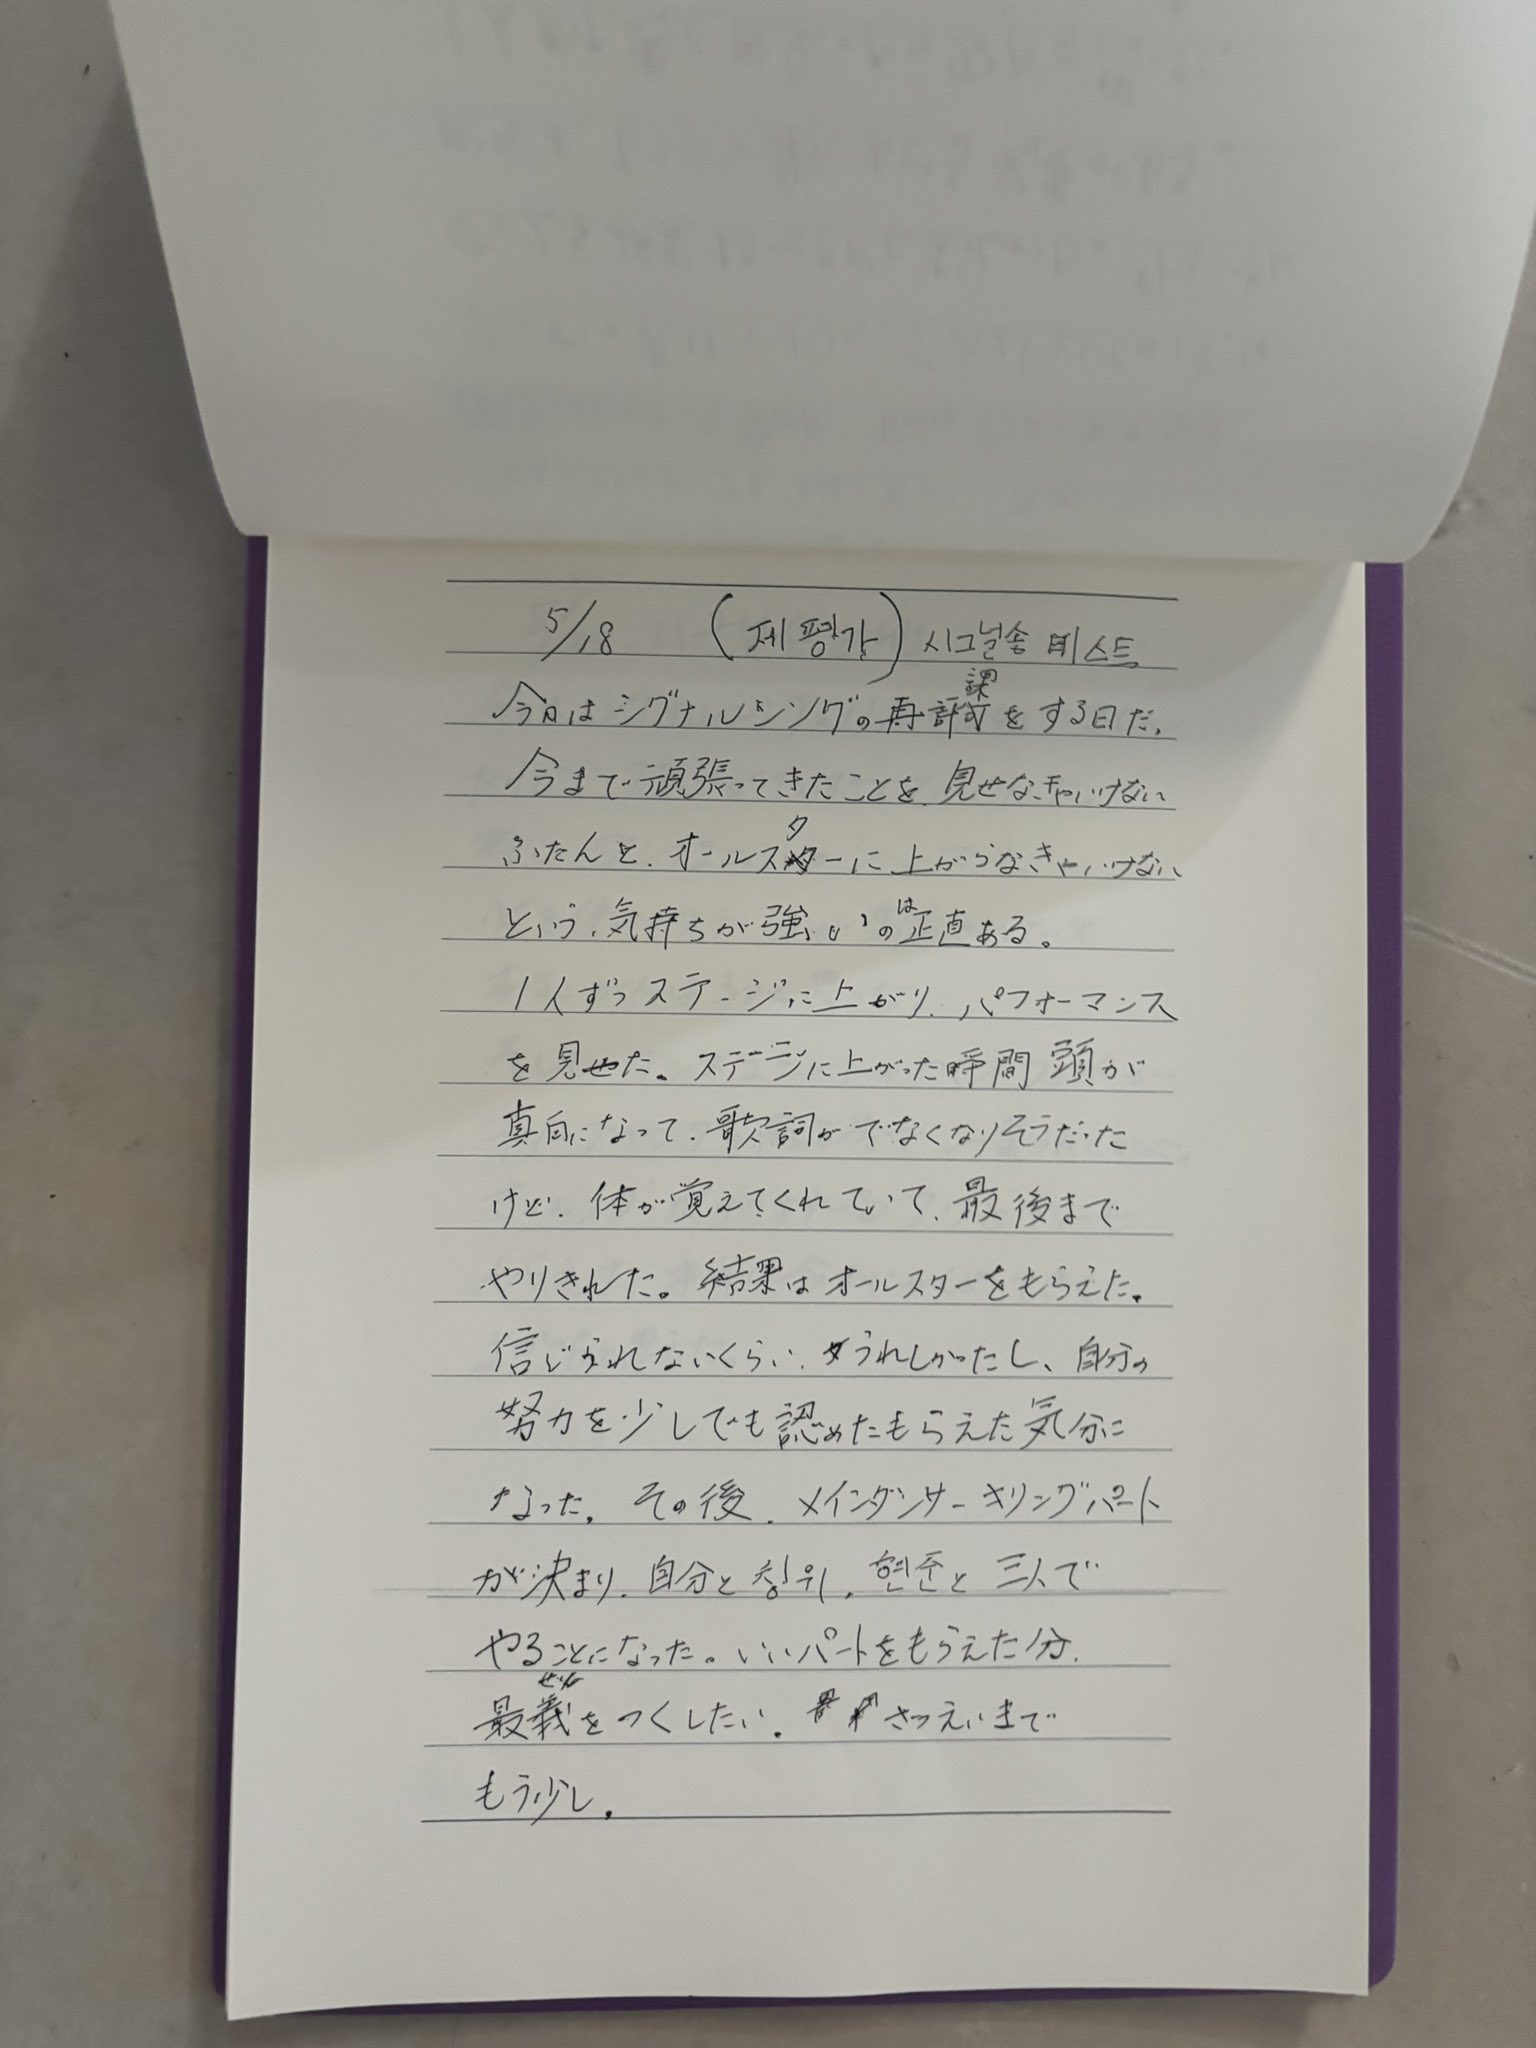 5/18 (제평가) 시그널송 테스트
今日はシグナルシングの再評課をする日だ。
今まで頑張ってきたことを、見せなきゃいけない
ふたんと、オールスターに上がらなきゃいけない
という、気持ちが強いのは正直ある。
1人ずつステージに上がり、パフォーマンス
を見せた。ステージに上がった瞬間頭が
真白になって、歌詞がでなくなりそうだった
けど、体が覚えてくれていて、最後まで
やりきれた。結果はオールスターをもらえた。
信じられないくらい、うれしかったし、自分の
努力を少しでも認めたもらえた気分に
なった。その後、メインダンサーキリングパート
が決まり、自分と창위、현준と三人で
やることになった。いいパートをもらえた分、
最義をつくしたい。さつえいまで
もう少し。